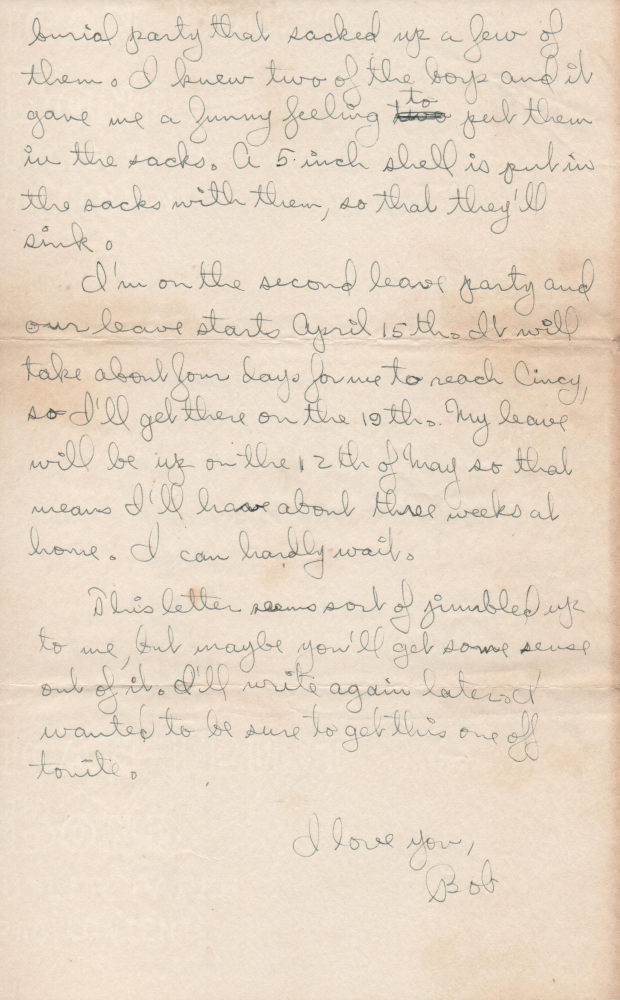 burial party that sacked up a few of
them. I knew two of the boys and it
gave me a funny feeling to put them
in the sacks. A 5 inch shell is put in
the sacks with them, so that they'll
sink.
I'm on the second leave party and
our leave starts April 15th. It will
take about four days for me to reach Cincy,
so I'll get there on the 19th. My leave
will be up on the 12th of May so that
means I'll have about three weeks at
home. I can hardly wait.
This letter seems sort of jumbled up
to me, but maybe you'll get some sense
out of it. I'll write again later. I
wanted to be sure to get this one off
tonite.
I love you,
Bob